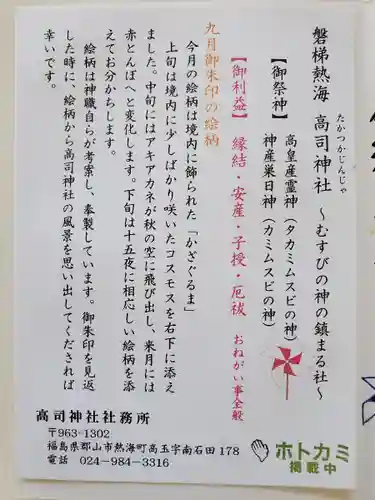 磐梯熱海 高司神社 ～むすびの神の鎮まる社～
たかつかじんじゃ
【御祭神】
高皇産霊神（タカミムスビの神）
神産巣日神（カミムスビの神）
【御利益】 縁結・安産・子授・厄祓 おねがい事全般
九月御朱印の絵柄
今月の絵柄は境内に飾られた「かざぐるま」
上旬は境内に少しばかり咲いたコスモスを右下に添え
ました。中旬にはアキアカネが秋の空に飛び出し、来月には
赤とんぼへと変化します。下旬は十五夜に相応しい絵柄を添
えてお分かちします。
絵柄は神職自らが考案し、奉製しています。御朱印を見返
した時に、絵柄から高司神社の風景を思い出してくだされば
幸いです。
高司神社社務所
〒963-1302
福島県郡山市熱海町高玉字南石田178
電話 024-984-3316
ホトカミ
掲載中